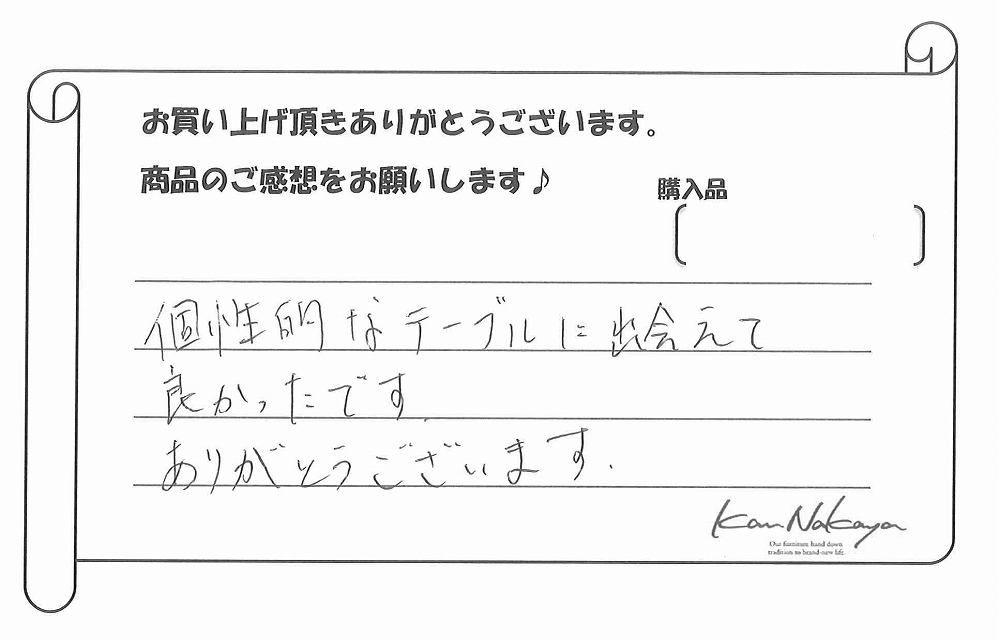 お買い上げ頂きありがとうございます。
商品のご感想をお願いします♪
購入品
個性的なテーブルに出会えて
良かったです
ありがとうございます.
Kan Nakaya
Our furniture hand down
tradition to brand-new life.